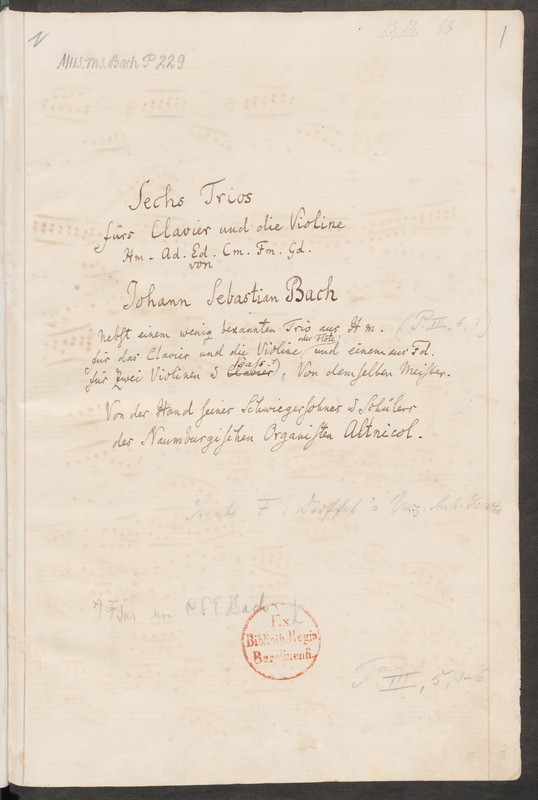 Mus. ms. Bach P 229
23, 24. 63
1
Sechs Trios
fürs Clavier und die Violine
Hm - Ad. Ed. Cm. Fm. Gd.
von
Johann Sebastian Bach
nebst einem wenig bekannten Trio aus Hm. (P. III, 6, 1)
für das Clavier und die Violine oder Flöte, und einem aus Fd.
für zwei Violinen u Clavier Bass), Von demselben Meister.
Von der Hand seines Schwiegersohnes u Schülers
des Naumburgischen Organisten Altnicol.
F : Dörffel's Verz.
F dur von P E Bach
Ex
Biblioth. Regia
Berolinensi.
P. III, 5, 1-6